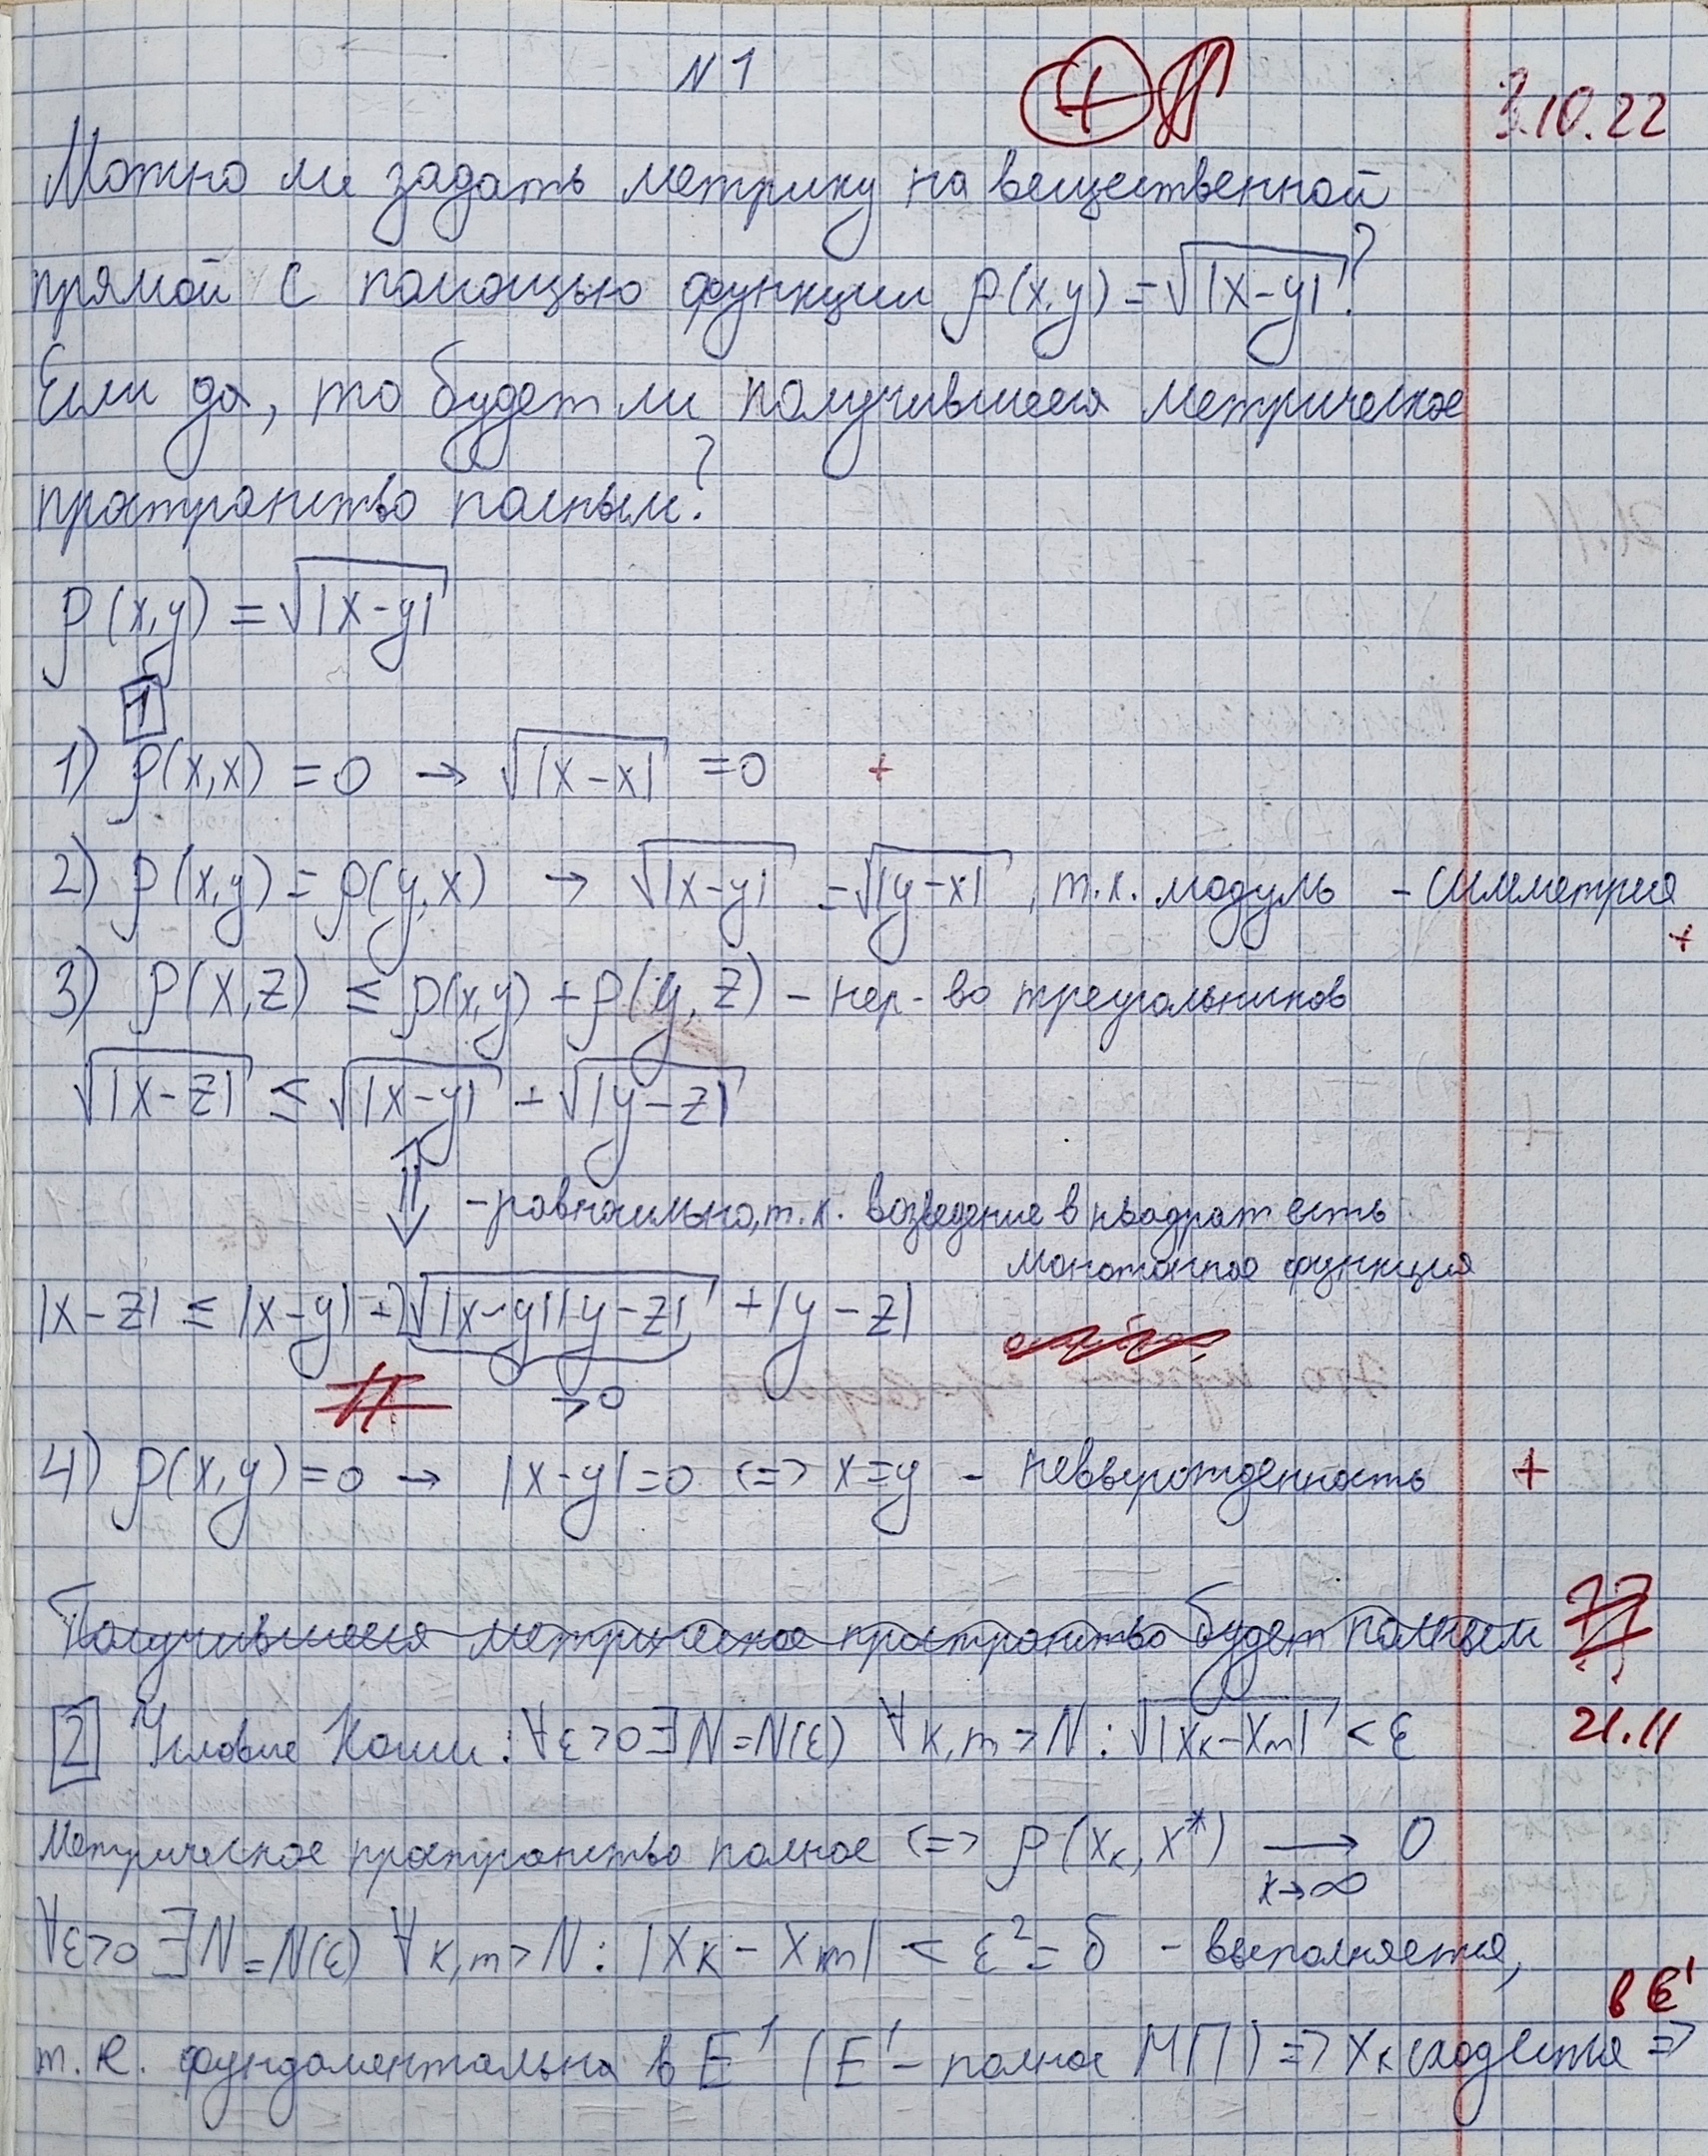 N 1
+
3.10.22
Можно ли задать метрику на вещественной
прямой с помощью функции ρ(x,y) = √|x-y| ?
Если да, то будет ли получившееся метрическое
пространство полным?
ρ(x,y) = √|x-y|
1
1) ρ(x,x) = 0 → √|x-x| = 0 +
2) ρ(x,y) = ρ(y,x) → √|x-y| = √|y-x| , т.к. модуль - симметрия
+
3) ρ(x,z) ≤ ρ(x,y) + ρ(y,z) - нер-во треугольников
√|x-z| ≤ √|x-y| + √|y-z|
⇕ - равносильно, т.к. возведение в квадрат есть
монотонная функция
|x-z| ≤ |x-y| + 2√|x-y||y-z| + |y-z|
>0
4) ρ(x,y) = 0 → |x-y| = 0 <=> x = y - невырожденность +
Получившееся метрическое пространство будет полным
2 Условие Коши: ∀ε>0 ∃N=N(ε) ∀k,m>N: √|xk-xm| < ε 21.11
Метрическое пространство полное <=> ρ(xk, x*) → 0
k→∞
∀ε>0 ∃N=N(ε) ∀k,m>N: |xk - xm| < ε² = δ - выполняется,
в E¹
т.к. фундаментальна в E¹ (E¹ - полное МП) => xk сходится =>